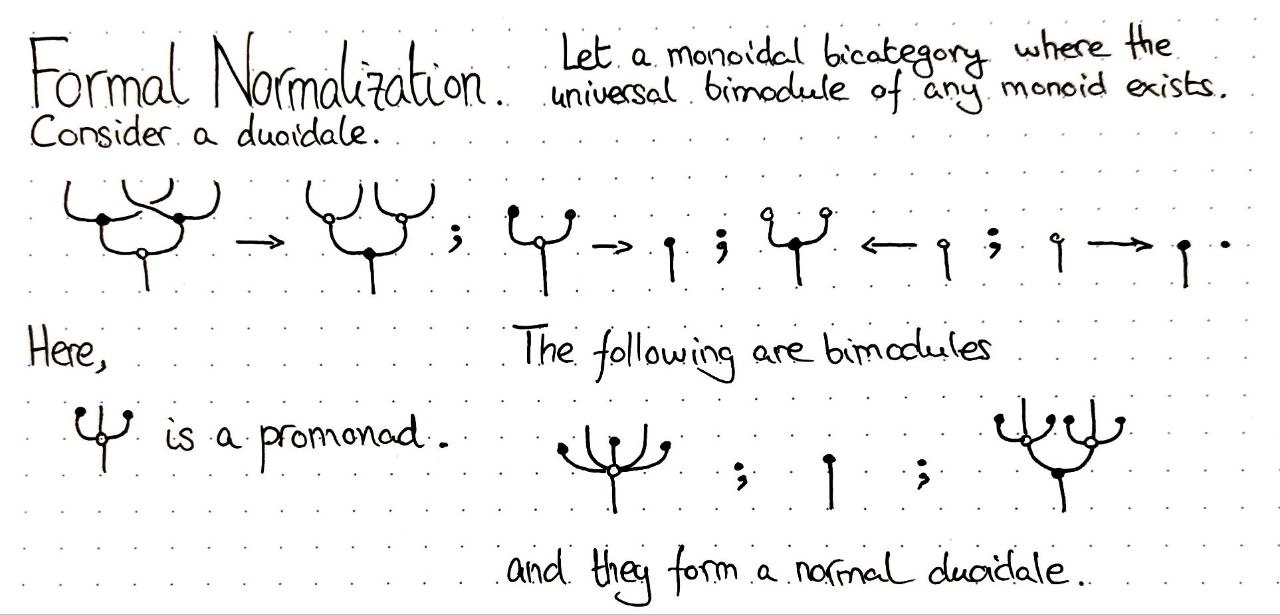 Formal Normalization. Let a monoidal bicategory where the
universal bimodule of any monoid exists.
Consider a duoidale.
; ; ; .
Here, The following are bimodules
is a promonad.
; ;
and they form a normal duoidale.